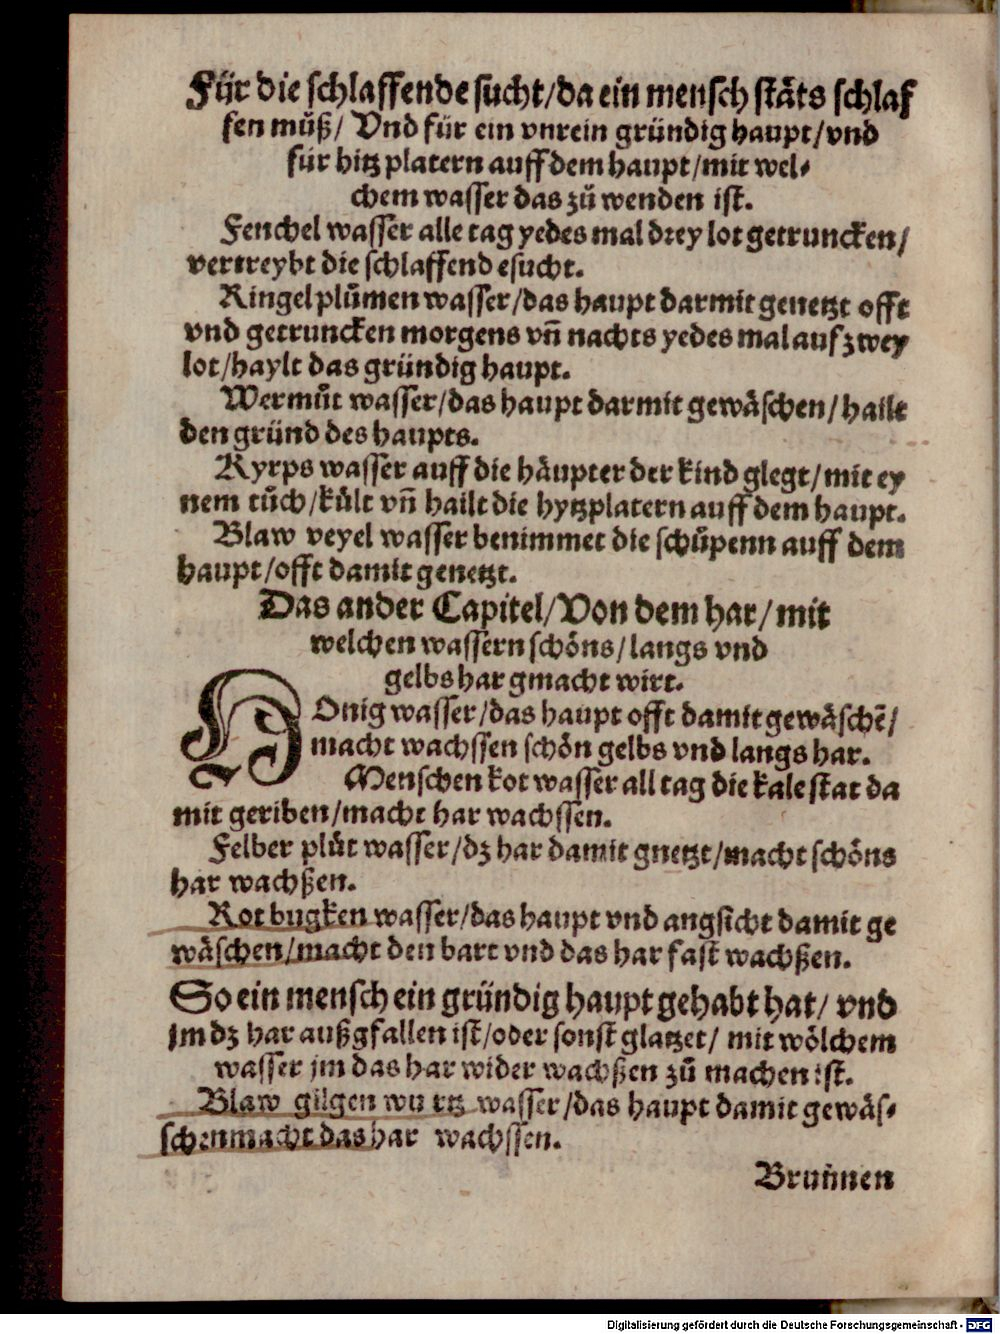 Für die schlaffende sucht/da ein mensch stäts schlaf
fen muͦß/ Vnd für ein vnrein gründig haupt/vnd
für hitz platern auff dem haupt/mit wel-
chem wasser das zuͦ wenden ist.
Fenchel wasser alle tag yedes mal drey lot getruncken/
vertreybt die schlaffend esucht.
Ringel pluͦmen wasser/das haupt darmit genetzt offt
vnd getruncken morgens vn̄ nachts yedes mal auf zwey
lot/haylt das gründig haupt.
Wermuͦt wasser/das haupt darmit gewäschen/hailt
den gründ des haupts.
Kyrps wasser auff die häupter der kind glegt/mit ey
nem tuͦch/kuͤlt vn̄ hailt die hytzplatern auff dem haupt.
Blaw veyel wasser benimmet die schuͦpenn auff dem
haupt/offt damit genetzt.
Das ander Capitel/Von dem har/mit
welchen wassern schöns/langs vnd
gelbs har gmacht wirt.
HOnig wasser/das haupt offt damit gewäschē/
macht wachssen schön gelbs vnd langs har.
Menschen kot wasser all tag die kale stat da
mit geriben/macht har wachssen.
Felber pluͦt wasser/dz har damit gnetzt/macht schöns
har wachßen.
Rot bugken wasser/das haupt vnd angsicht damit ge
wäschen/macht den bart vnd das har fast wachßen.
So ein mensch ein gründig haupt gehabt hat/ vnd
jm dz har außgfallen ist/oder sonst glatzet/ mit wölchem
wasser jm das har wider wachßen zuͦ machen ist.
Blaw gilgen wurtz wasser/das haupt damit gewäs-
schen macht das har wachssen.
Brunnen
Digitalisierung gefördert durch die Deutsche Forschungsgemeinschaft - DFG